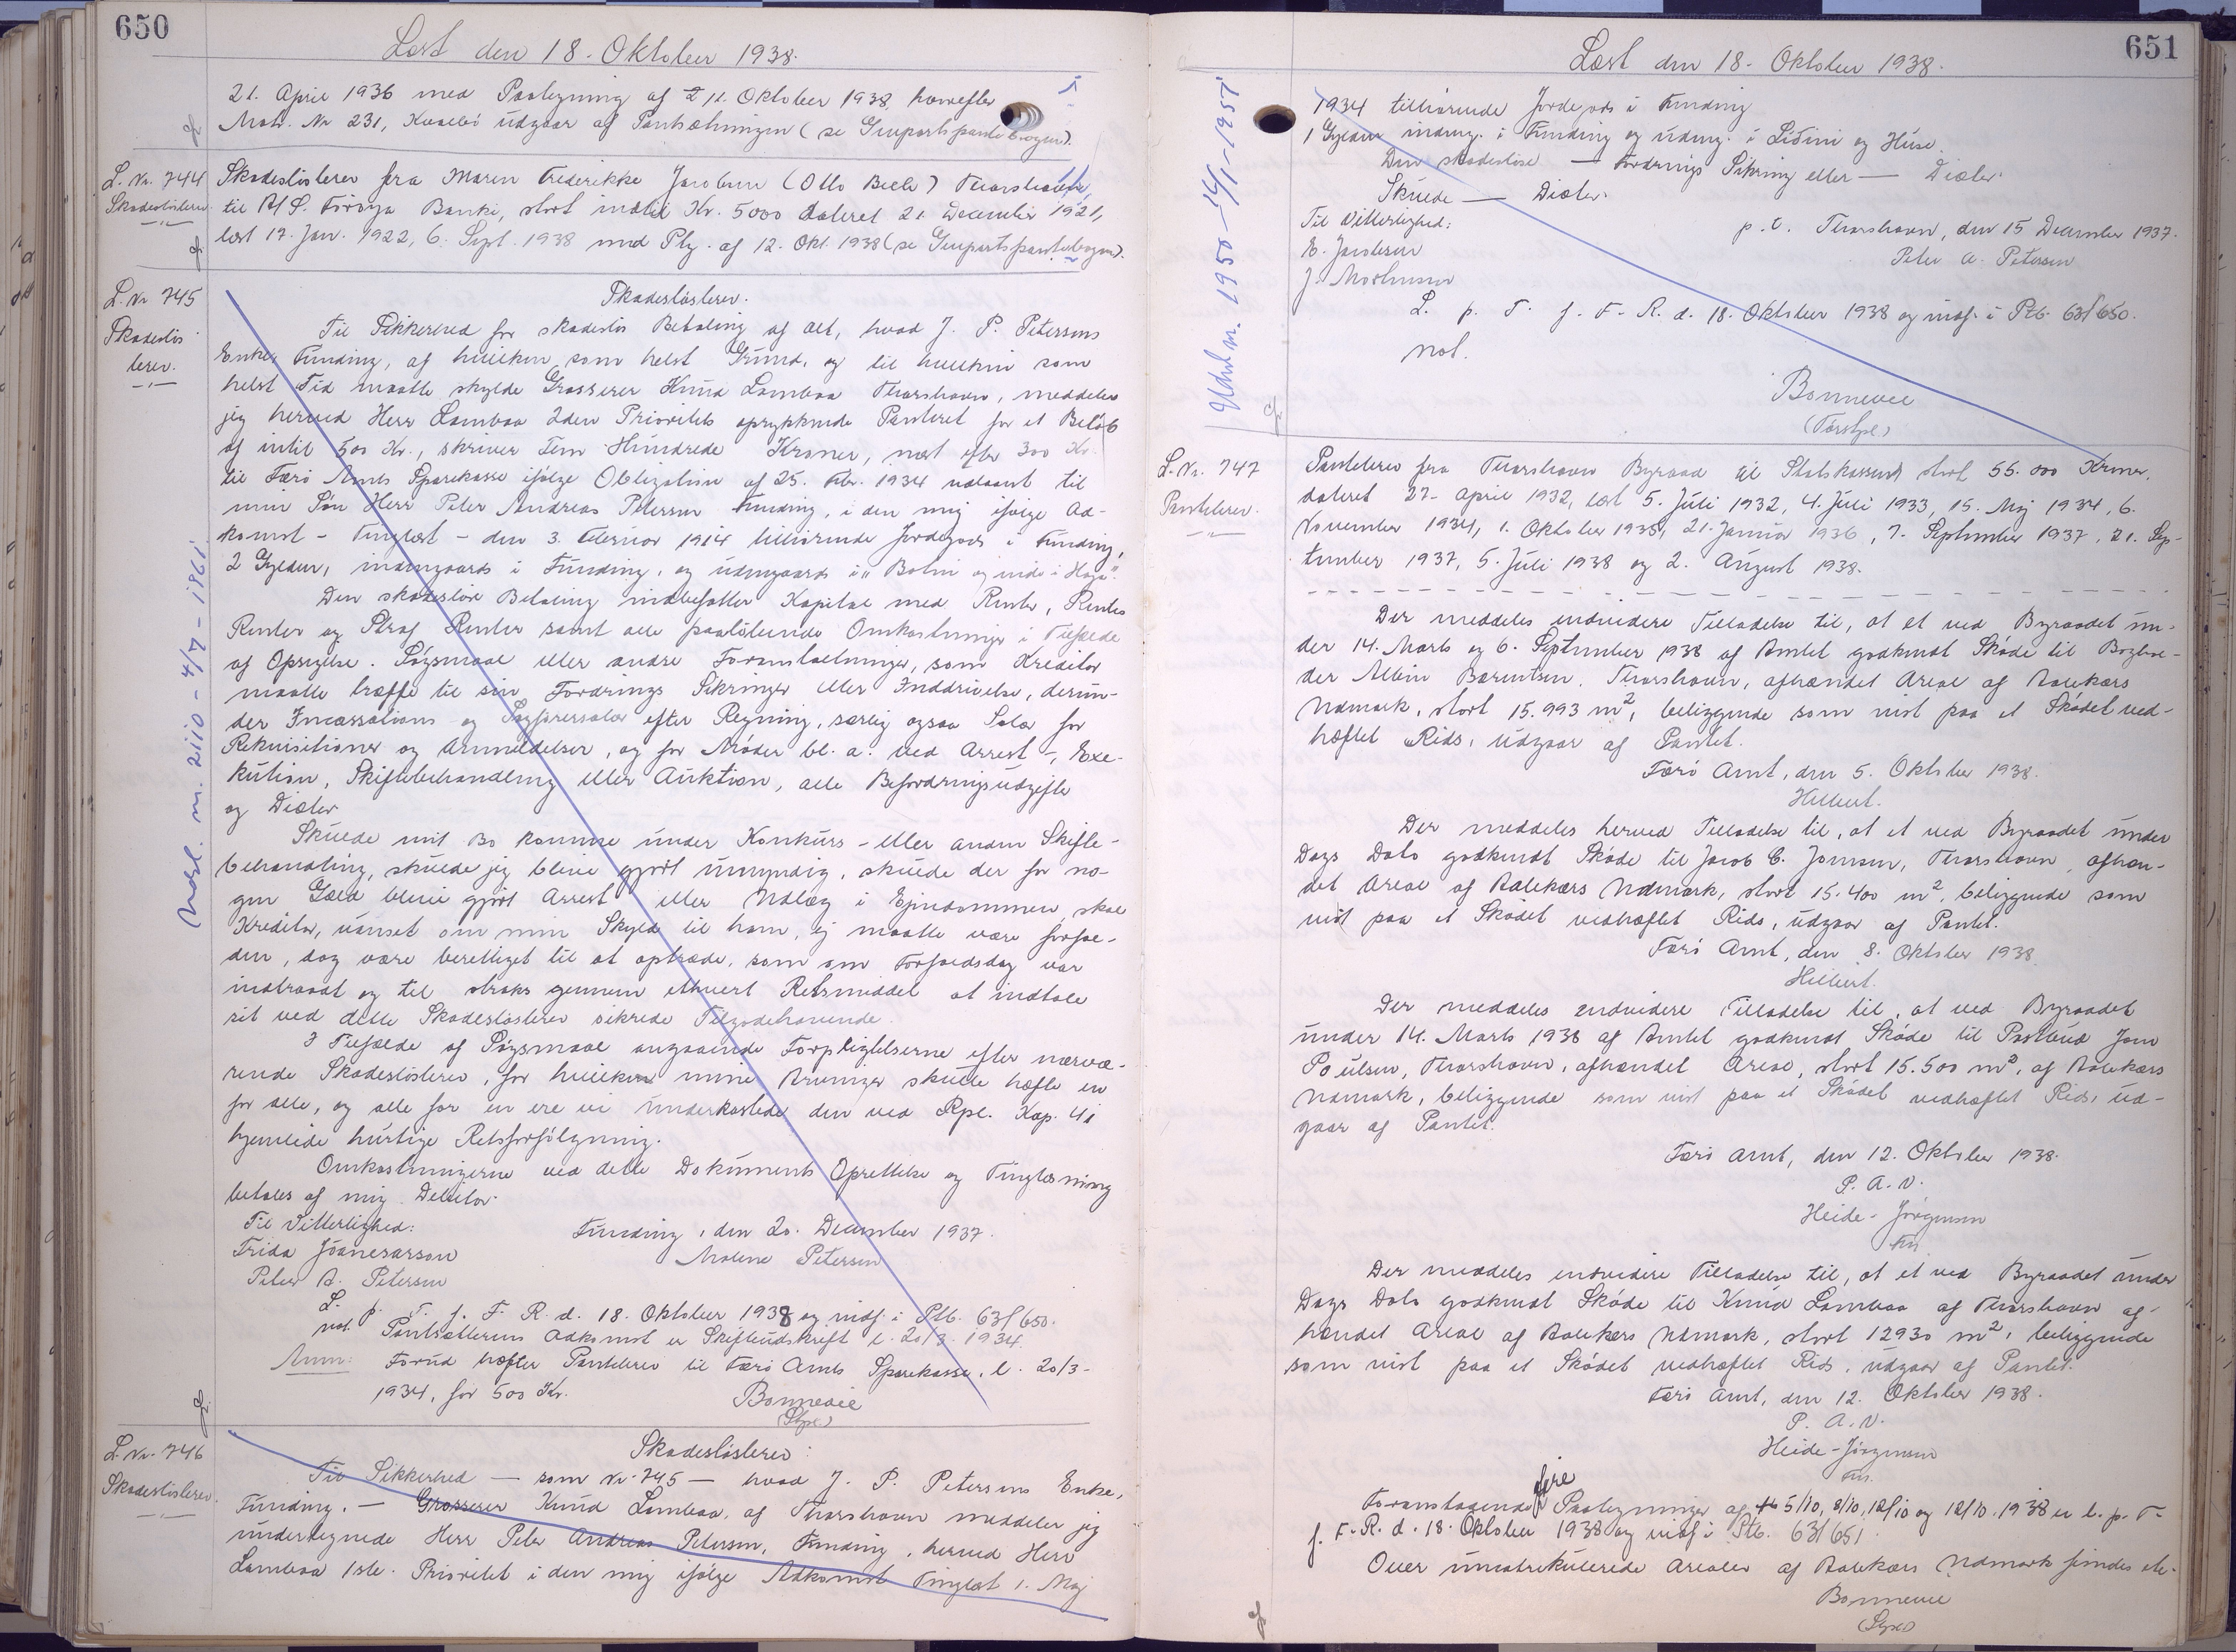 650
Læst den 18. Oktober 1938.
21. April 1936 med Paategning af 11. Oktober 1938, hvorefter
Matr. Nr 231, Kvalbø udgaar af Pantsætningen (se Genpartspantebogen).
L. Nr. 744
Skadesløsbrev
Skadesløsbrev fra Maren Frederikke Jacobsen (Otto Bech) Thorshavn,
til A/S. Föroya Banki, stort indtil Kr. 5000 dateret 21 December 1921,
læst 17. Jan. 1922, 6. Sept. 1938 med Ptg. af 12. Okt. 1938 (se Genpartspantebogen).
L. Nr 745
Skadesløs
brev.
Skadesløsbrev.
Til Sikkerhed for skadesløs Betaling af alt, hvad J. P. Petersens
Enke, Funding, af hvilken som helst Grund, og til hvilken som
helst Tid maatte skylde Grosserer Knud Lamboa Thorshavn, meddeler
jeg herved Herr Lamboa 2den Prioritets oprykkende Panteret for et Beløb
af indtil 500 Kr., skriver Fem Hundrede Kroner, næst efter 300 Kr.
til Færø Amts Sparekasse ifølge Obligation af 25. Febr. 1934 udstedt til
min Søn Herr Peter Andreas Petersen Funding, i den mig ifølge Ad-
komst - Tinglæst - den 3. Februar 1914 tilhørende Jordegods i Funding,
2 Gylden, indengaards i Funding, og udengaards i " Botni og inde i Haga".
Den skadesløse Betaling indbefatter Kapital med Renter, Rentes
Renter og Straf Renter samt alle paaløbende Omkostninger i Tilfælde
af Opsigelse. Søgsmaal eller andre Foranstaltninger, som Kreditor
maatte træffe til sin Fordrings Sikringer eller Inddrivelse, derun-
der Incassations og Sagførersalær efter Regning, særlig ogsaa Salær for
Rekvisitioner og Anmeldelser, og for Møder bl. a. ved Arrest-, Exe-
kution, Skiftebehandling eller Auktion, alle Befordringsudgifter
og Diæter
Skulde mit Bo komme under Konkurs- eller anden Skifte-
behandling, skulde jeg blive gjort umyndig, skulde der for no-
gen Gæld blive gjort Arrest eller Udlæg i Ejendommen, skal
Kreditor, uanset om min Skyld til ham, ej maatte være forfal-
den, dog være berettiget til at optræde, som om Forfaldsdag var
indtraadt og til straks gennem ethvert Retsmiddel at indtale
sit ved dette Skadesløsbrev sikrede Tilgodehavende.
I Tilfælde af Søgsmaal angaaende Forpligtelserne efter nærvæ-
rende Skadesløsbrev, for hvilken mine Arvinger skulle hæfte en
for alle, og alle for en ere vi underkastede den ved Rpl. Kap. 41
hjemlede hurtige Retsforfølgning.
Omkostningerne ved dette Dokuments Oprettelse og Tinglæsning
betales af mig Debitor.
Til Vitterlighed:
Funding, den 20. December 1937.
Frida Jóanesarson
Malene Petersen
Peter A. Petersen
L. p. T. f. F. R. d. 18. Oktober 1938 og indf. i Ptb. 63/650.
not. Pantsætterens Adkomst er Skifteudskrift l. 20/3. 1934.
Anm: Forud hæfter Pantebrev til Færø Amts Sparekasse, l. 20/3-
1934, for 500 Kr.
Bonnevie
Udsl. nr. 2110 - 4/7 - 1961
L. Nr. 746
Skadesløsbrev.
Skadesløsbrev:
Til Sikkerhed — som Nr. 745 — hvad J. P. Petersens Enke,
Funding. — Grosserer Knud Lamboa, af Thorshavn meddeler jeg
undertegnede Herr Peter Andreas Petersen, Funding, herved Herr
Lamboa 1ste. Prioritet i den mig ifølge Adkomst Tinglæst 1. Maj
651
Læst den 18. Oktober 1938.
1934 tilhørende Jordegods i Funding
1 Gylden indeng. i Funding og udeng. i Lidini og Huse.
Den skadesløse — Fordrings Sikring eller — Diæter.
Skulde — Diæter.
Til Vitterlighed:
p. t. Thorshavn, den 15 December 1937.
E. Jacobsen
Peter A. Petersen
J. Mortensen
L. p. T. f. F. R. d. 18. Oktober 1938 og indf. i Ptb. 63/650.
not.
Bonnevie
L. Nr. 747
Pantebrev.
Pantebrev fra Thorshavn Byraad til Statskassen stort 55.000 Kroner,
dateret 27. April 1932, læst 5. Juli 1932, 4. Juli 1933, 15. Maj 1934, 6.
November 1934, 1. Oktober 1935, 21. Januar 1936, 7. September 1937, 21. Sep-
tember 1937, 5. Juli 1938 og 2. August 1938.
Der meddeles endvidere Tilladelse til, at et ved Byraadet un-
der 14. Marts og 6. September 1938 af Amtet godkendt Skøde til Bogbin-
der Albin Bærentsen, Thorshavn, afhændet Areal af Aalekærs
Udmark, stort 15.993 m², beliggende som vist paa et Skødet ved-
hæftet Rids, udgaar af Pantet.
Færø Amt, den 5. Oktober 1938.
Hilbert.
Der meddeles herved Tilladelse til, at et ved Byraadet under
Dags Dato godkendt Skøde til Jacob C. Jensen, Thorshavn, afhæn-
det Areal af Aalekærs Udmark, stort 15.400 m², beliggende som
vist paa et Skødet vedhæftet Rids, udgaar af Pantet.
Færø Amt, den 8. Oktober 1938.
Hilbert.
Der meddeles endvidere Tilladelse til, at ved Byraadet
under 14. Marts 1938 af Amtet godkendt Skøde til Postbud Jom
Poulsen, Thorshavn, afhændet Areal, stort 15.500 m², af Aalekærs
Udmark, beliggende som vist paa et Skødet vedhæftet Rids, ud-
gaar af Pantet.
Færø Amt, den 12. Oktober 1938.
P. A. V.
Heide-Jörgensen
Fm.
Der meddeles endvidere Tilladelse til, at et ved Byraadet under
Dags Dato godkendt Skøde til Knud Lamboa af Thorshavn af-
hændet Areal af Aalekærs Udmark, stort 12930 m², beliggende
som vist paa et Skødet vedhæftet Rids, udgaar af Pantet.
Færø Amt, den 12. Oktober 1938.
P. A. V.
Heide-Jörgensen
Fm.
Foranstaaende fire Paategninger af 5/10, 8/10, 12/10 og 12/10. 1938 er l. p. T.
f. F. R. d. 18. Oktober 1938 og indf. i Ptb. 63/651.
Over umatrikulerede Arealer af Aalekærs Udmark findes etc.
Bonnevie